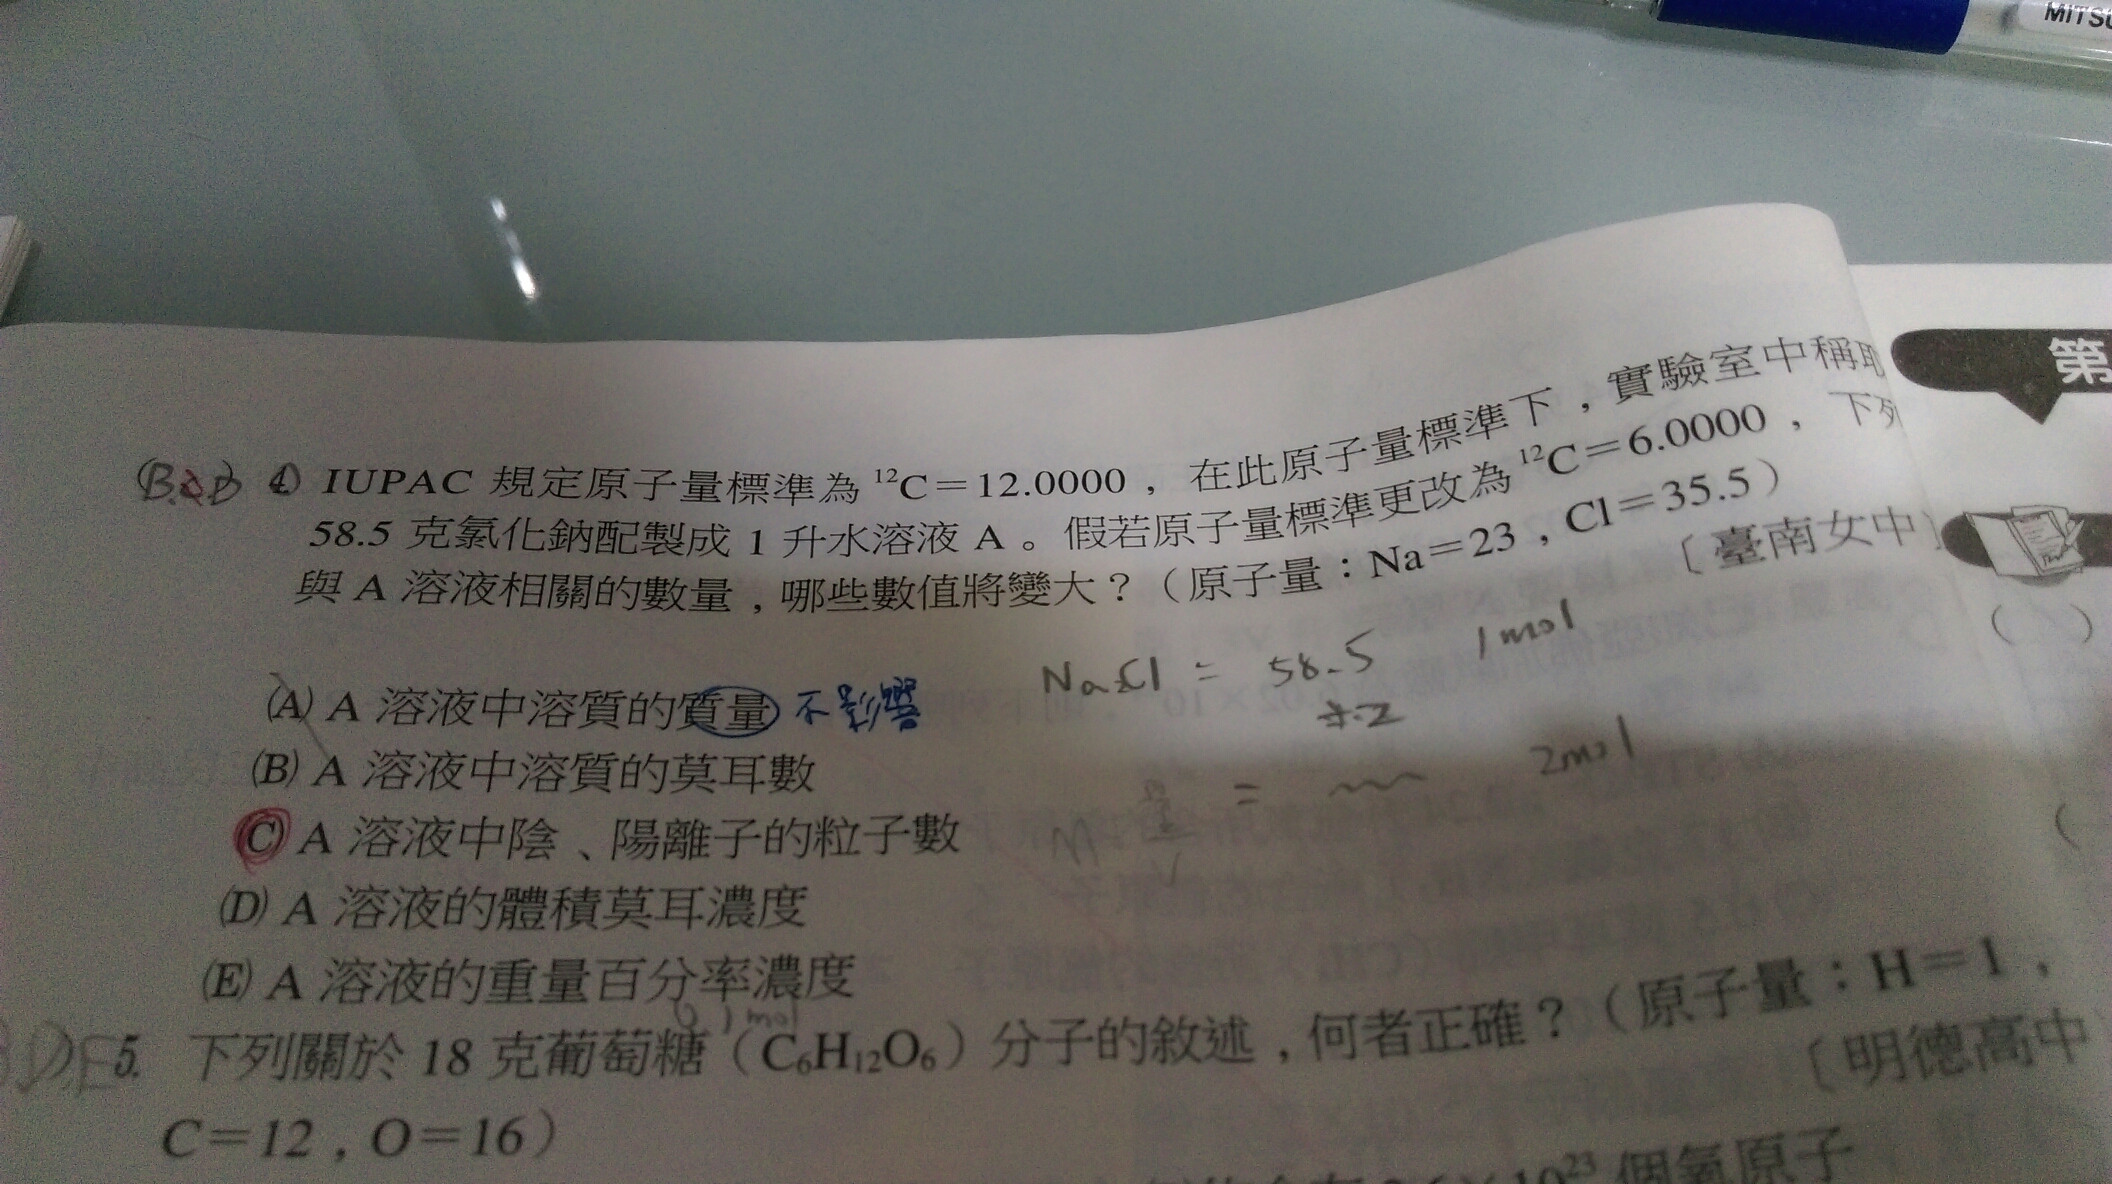 MITSU
第
4. IUPAC 規定原子量標準為 ¹²C=12.0000，在此原子量標準下，實驗室中稱取
58.5 克氯化鈉配製成 1 升水溶液 A。假若原子量標準更改為 ¹²C=6.0000，下列
與 A 溶液相關的數量，哪些數值將變大？（原子量：Na=23，Cl=35.5）
〔臺南女中〕
( )
NaCl = 58.5 1mol
(A) A 溶液中溶質的質量 不影響
÷2
(B) A 溶液中溶質的莫耳數
量 = 2mol
(C) A 溶液中陰、陽離子的粒子數
M
(D) A 溶液的體積莫耳濃度
(E) A 溶液的重量百分率濃度
1mol
5. 下列關於 18 克葡萄糖（C₆H₁₂O₆）分子的敘述，何者正確？（原子量：H=1，
C=12，O=16）
〔明德高中
10²³ 個氧原子